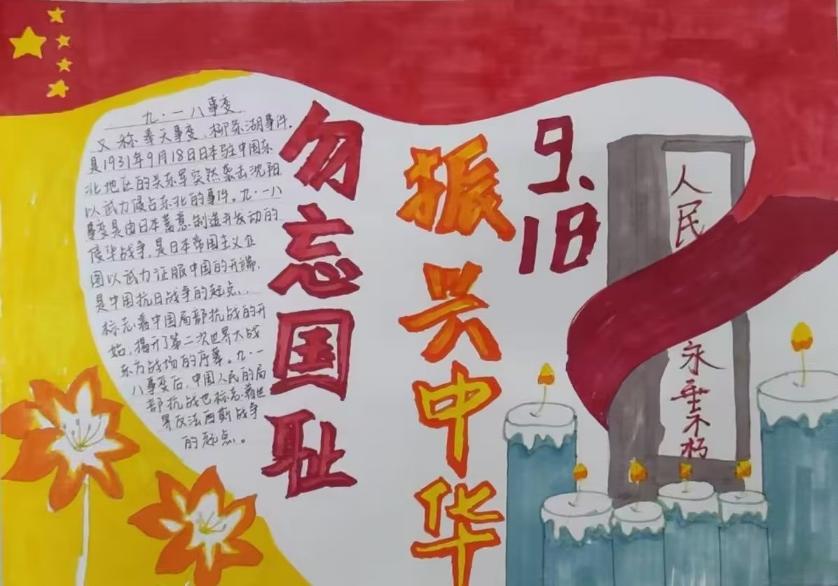 九·一八事变
又称奉天事变、柳条湖事件。
是1931年9月18日日本驻中国东
北地区的关东军突然袭击沈阳
以武力侵占东北的事件。九·一八
事变是由日本蓄意制造并发动的
侵华战争，是日本帝国主义企
图以武力征服中国的开端，
是中国抗日战争的起点，
标志着中国局部抗战的开
始，揭开了第二次世界大战
东方战场的序幕。九·一
八事变后，中国人民的局
部抗战也标志着世
界反法西斯战争
的起点。
勿忘国耻
振兴中华
9.18
人民
永垂不朽